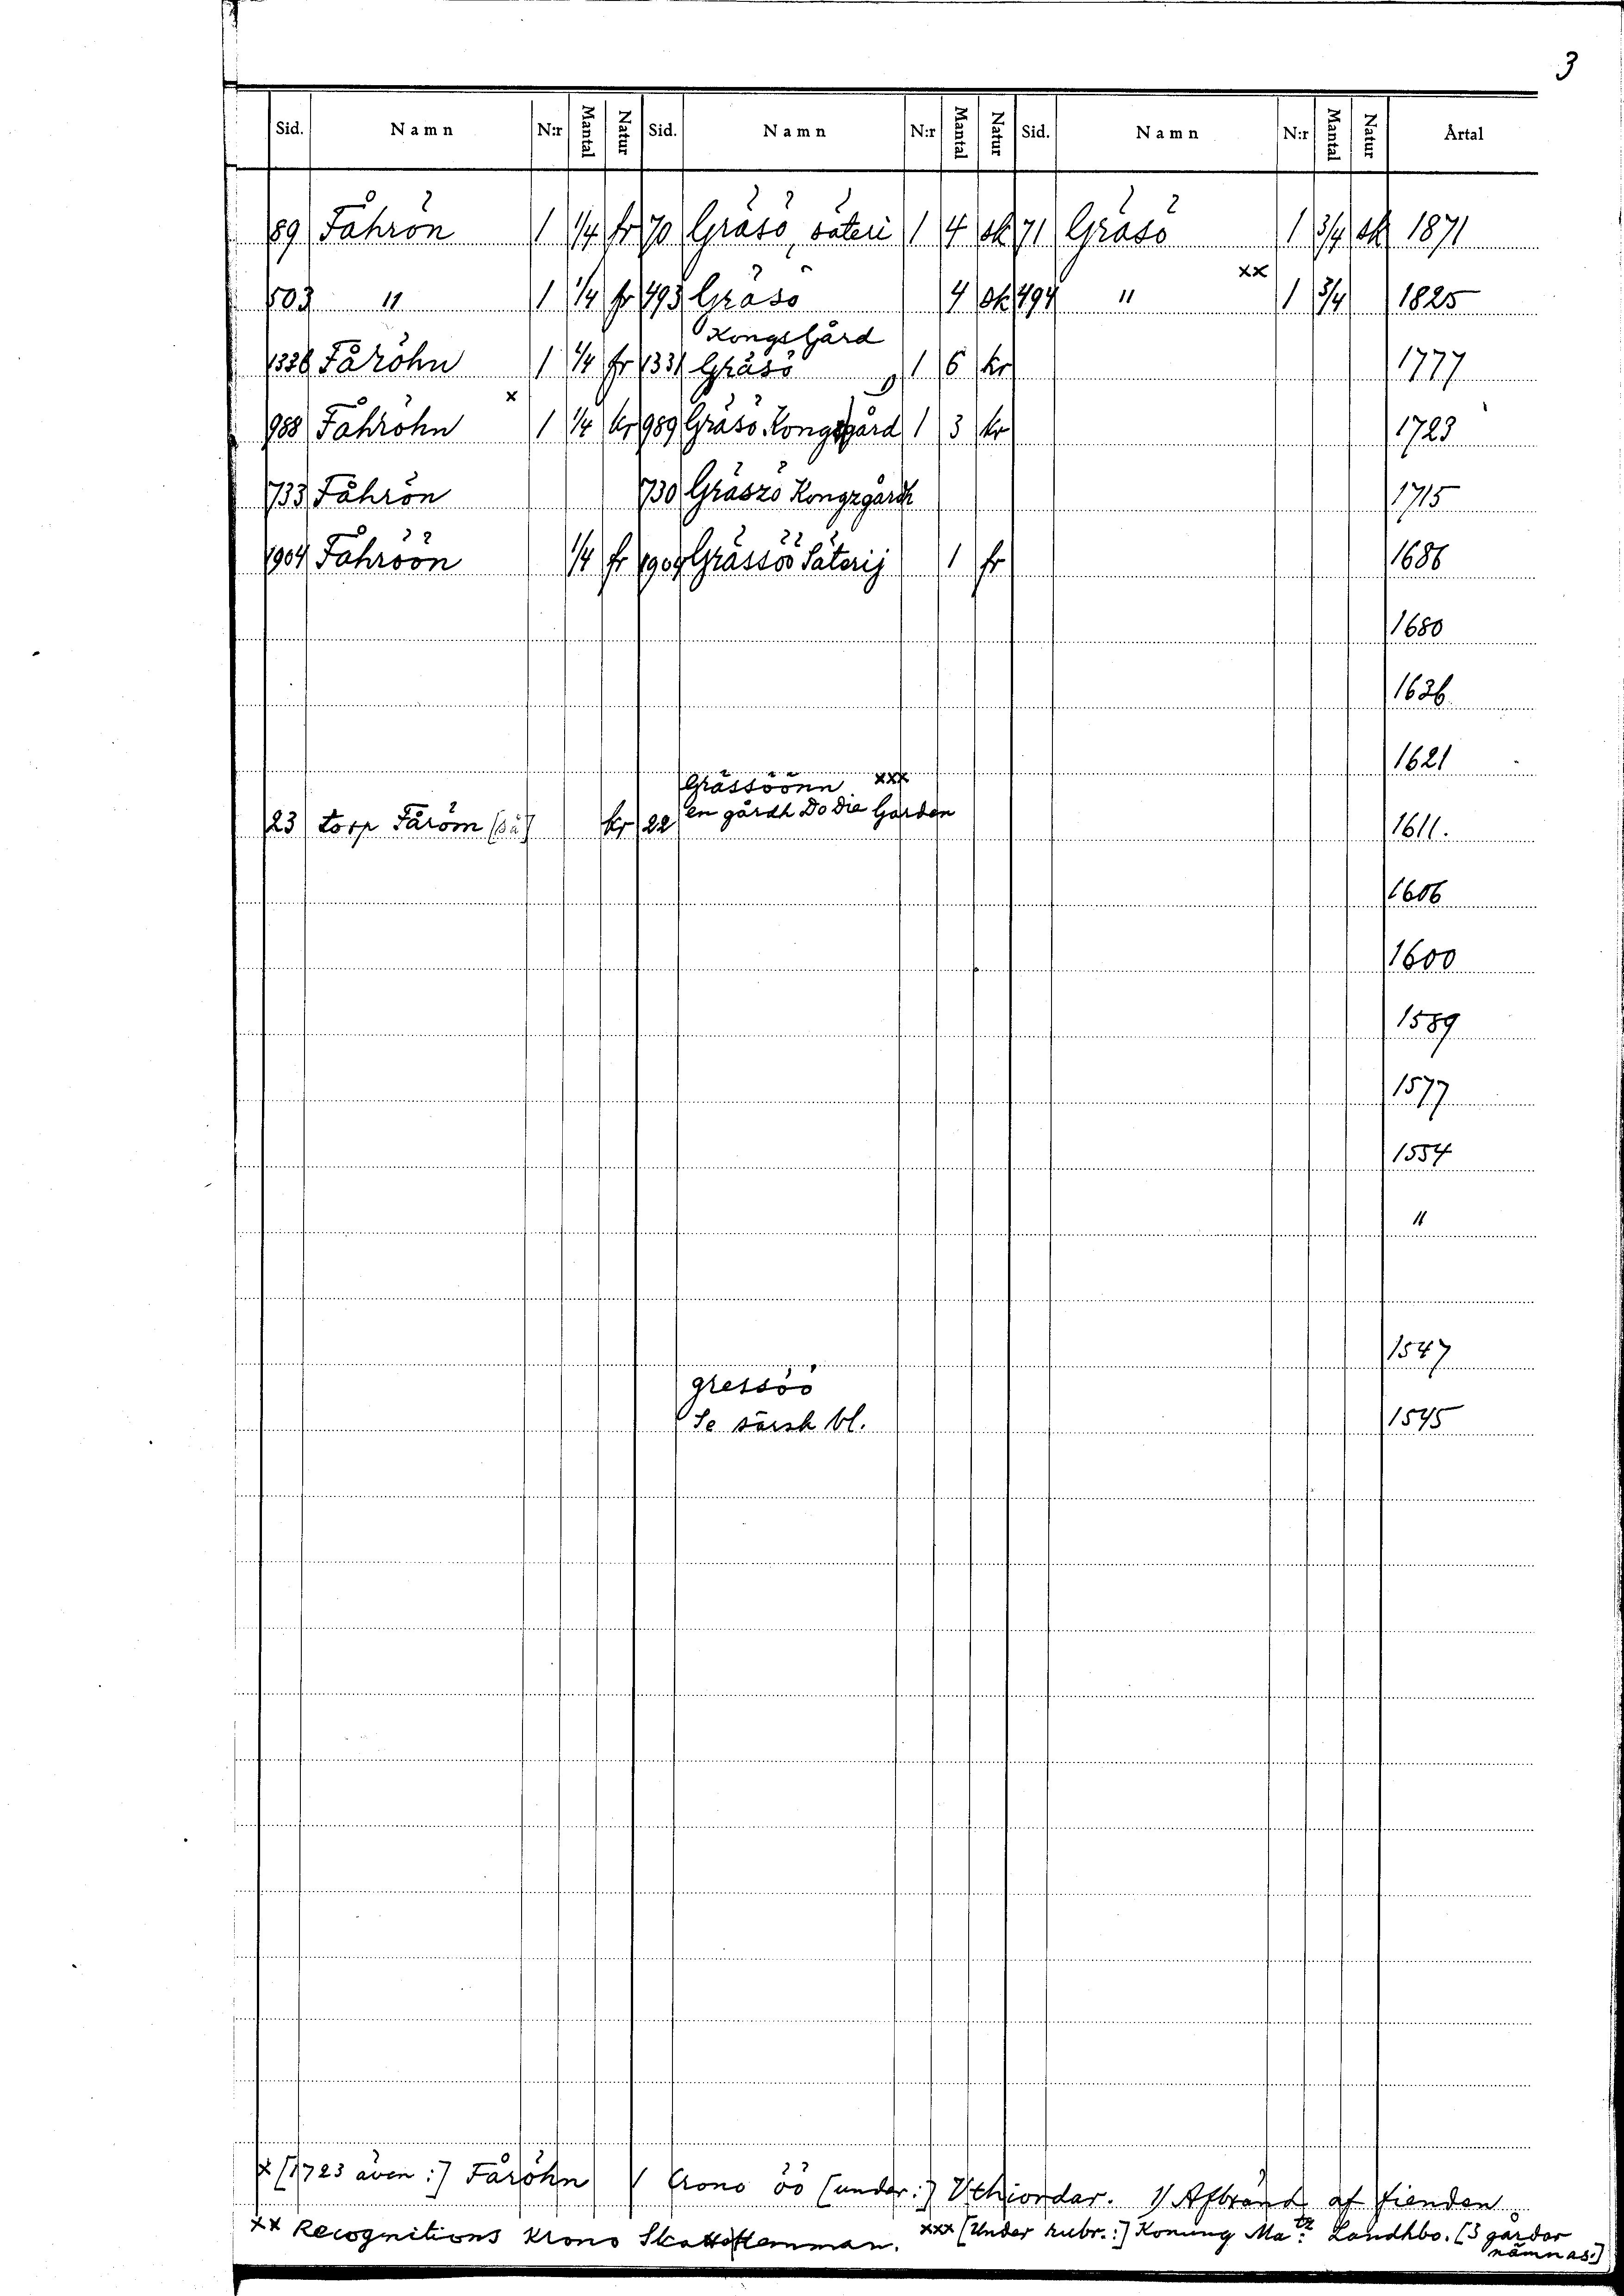 3
Sid. Namn N:r Mantal Natur Sid. Namn N:r Mantal Natur Sid. Namn N:r Mantal Natur Årtal
89 Fåhrön 1 1/4 fr 70 Gräsö, säteri 1 4 sk 71 Gräsö 1 3/4 sk 1871
503 " 1 1/4 fr 493 Gräsö 4 sk 494 " xx 1 3/4 1825
Kongsgård
1336 Fåröhn 1 1/4 fr 1331 Gräsö 1 6 kr 1777
988 Fåhröhn x 1 1/4 kr 989 Gräsö Kongsgård 1) 1 3 kr 1723
733 Fåhrön 730 Gräszö Kongzgårdh 1715
1904 Fåhröön 1/4 fr 1904 Grässöö Säterij 1 fr 1686
1680
1636
1621
Grässöönn xxx
23 torp Fåröm [så] kr 22 en gårdh Do Die Garden 1611.
1606
1600
1589
1577
1554
"
1547
gressöö
Se särsk bl. 1545
x [1723 även:] Fåröhn / Crono öö [under:] Uthiordar. 1) Afbränd af fienden
xx Recognitions Krono Skatte Hemman. xxx [Under rubr.:] Konung Ma:tz Landhbo. [3 gårdar
nämnas.]